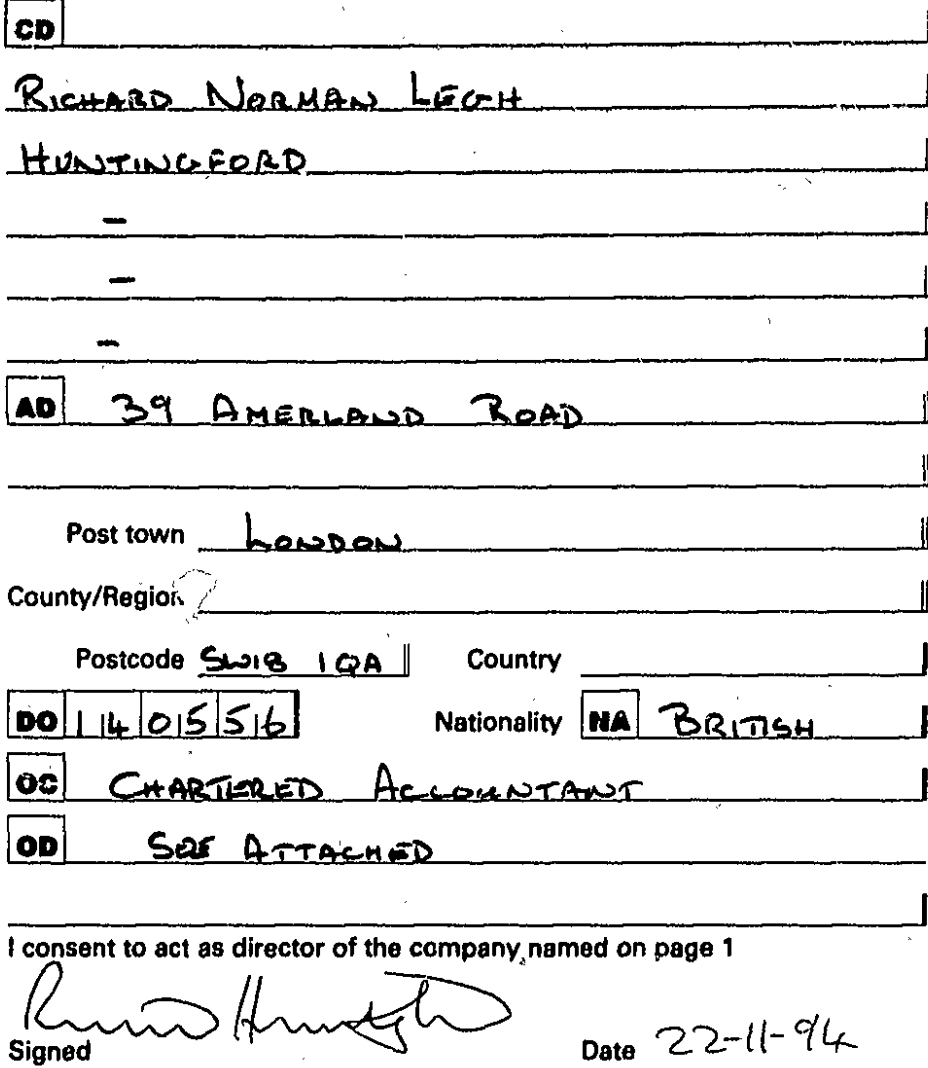 CD
RICHARD NORMAN LEGH
HUNTINGFORD
–
–
–
AD 39 AMERLAND ROAD
Post town LONDON
County/Region ?
Postcode SW18 1QA Country
DO 14 05 56 Nationality NA BRITISH
OC CHARTERED ACCOUNTANT
OD SEE ATTACHED
I consent to act as director of the company named on page 1
Signed Date 22-11-94